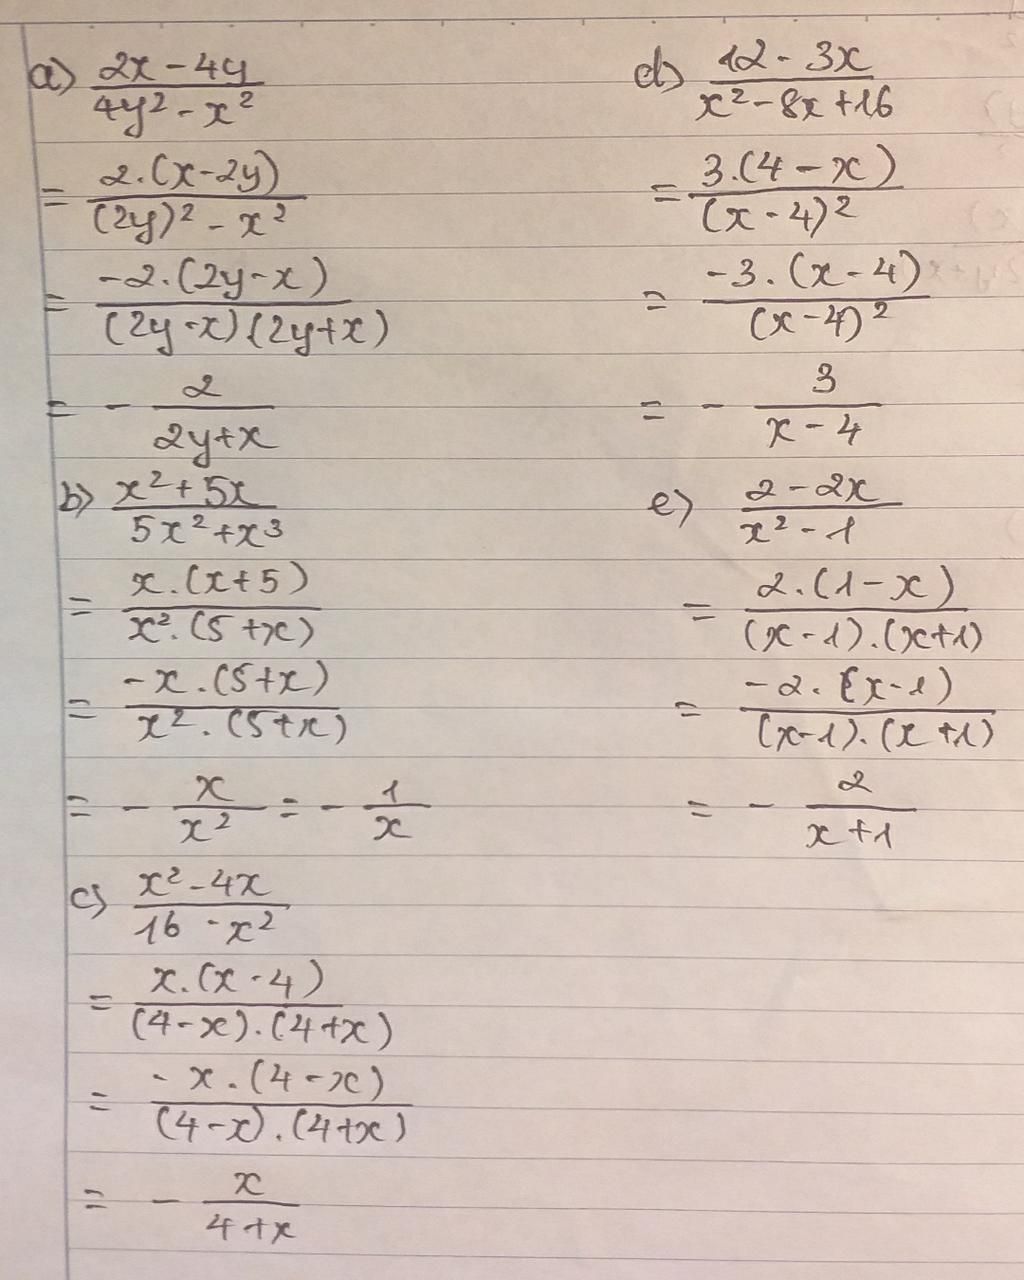 a) (2x - 4y)/(4y² - x²)
= (2.(x-2y))/((2y)² - x²)
= (-2.(2y-x))/((2y-x)(2y+x))
= - 2/(2y+x)
b) (x² + 5x)/(5x² + x³)
= (x.(x+5))/(x².(5+x))
= (-x.(5+x))/(x².(5+x))
= - x/x² = - 1/x
c) (x² - 4x)/(16 - x²)
= (x.(x-4))/((4-x).(4+x))
= (-x.(4-x))/((4-x).(4+x))
= - x/(4+x)
d) (12 - 3x)/(x² - 8x + 16)
= (3.(4-x))/((x-4)²)
= (-3.(x-4))/((x-4)²)
= - 3/(x-4)
e) (2 - 2x)/(x² - 1)
= (2.(1-x))/((x-1).(x+1))
= (-2.(x-1))/((x-1).(x+1))
= - 2/(x+1)